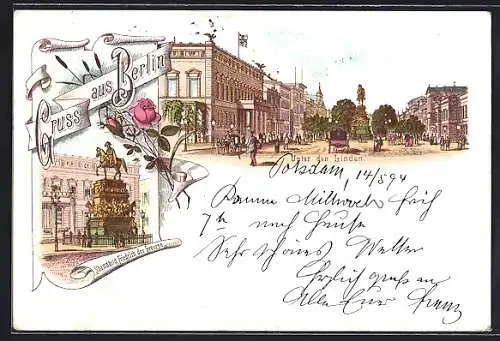 Gruss aus Berlin
Unter den Linden.
Standbild Friedrich des Grossen
Potsdam, 14/8 94
Komme Mittwoch früh
7 h nach Hause
Sehr schönes Wetter
Herzlich grüßt an
Alle Euer Franz